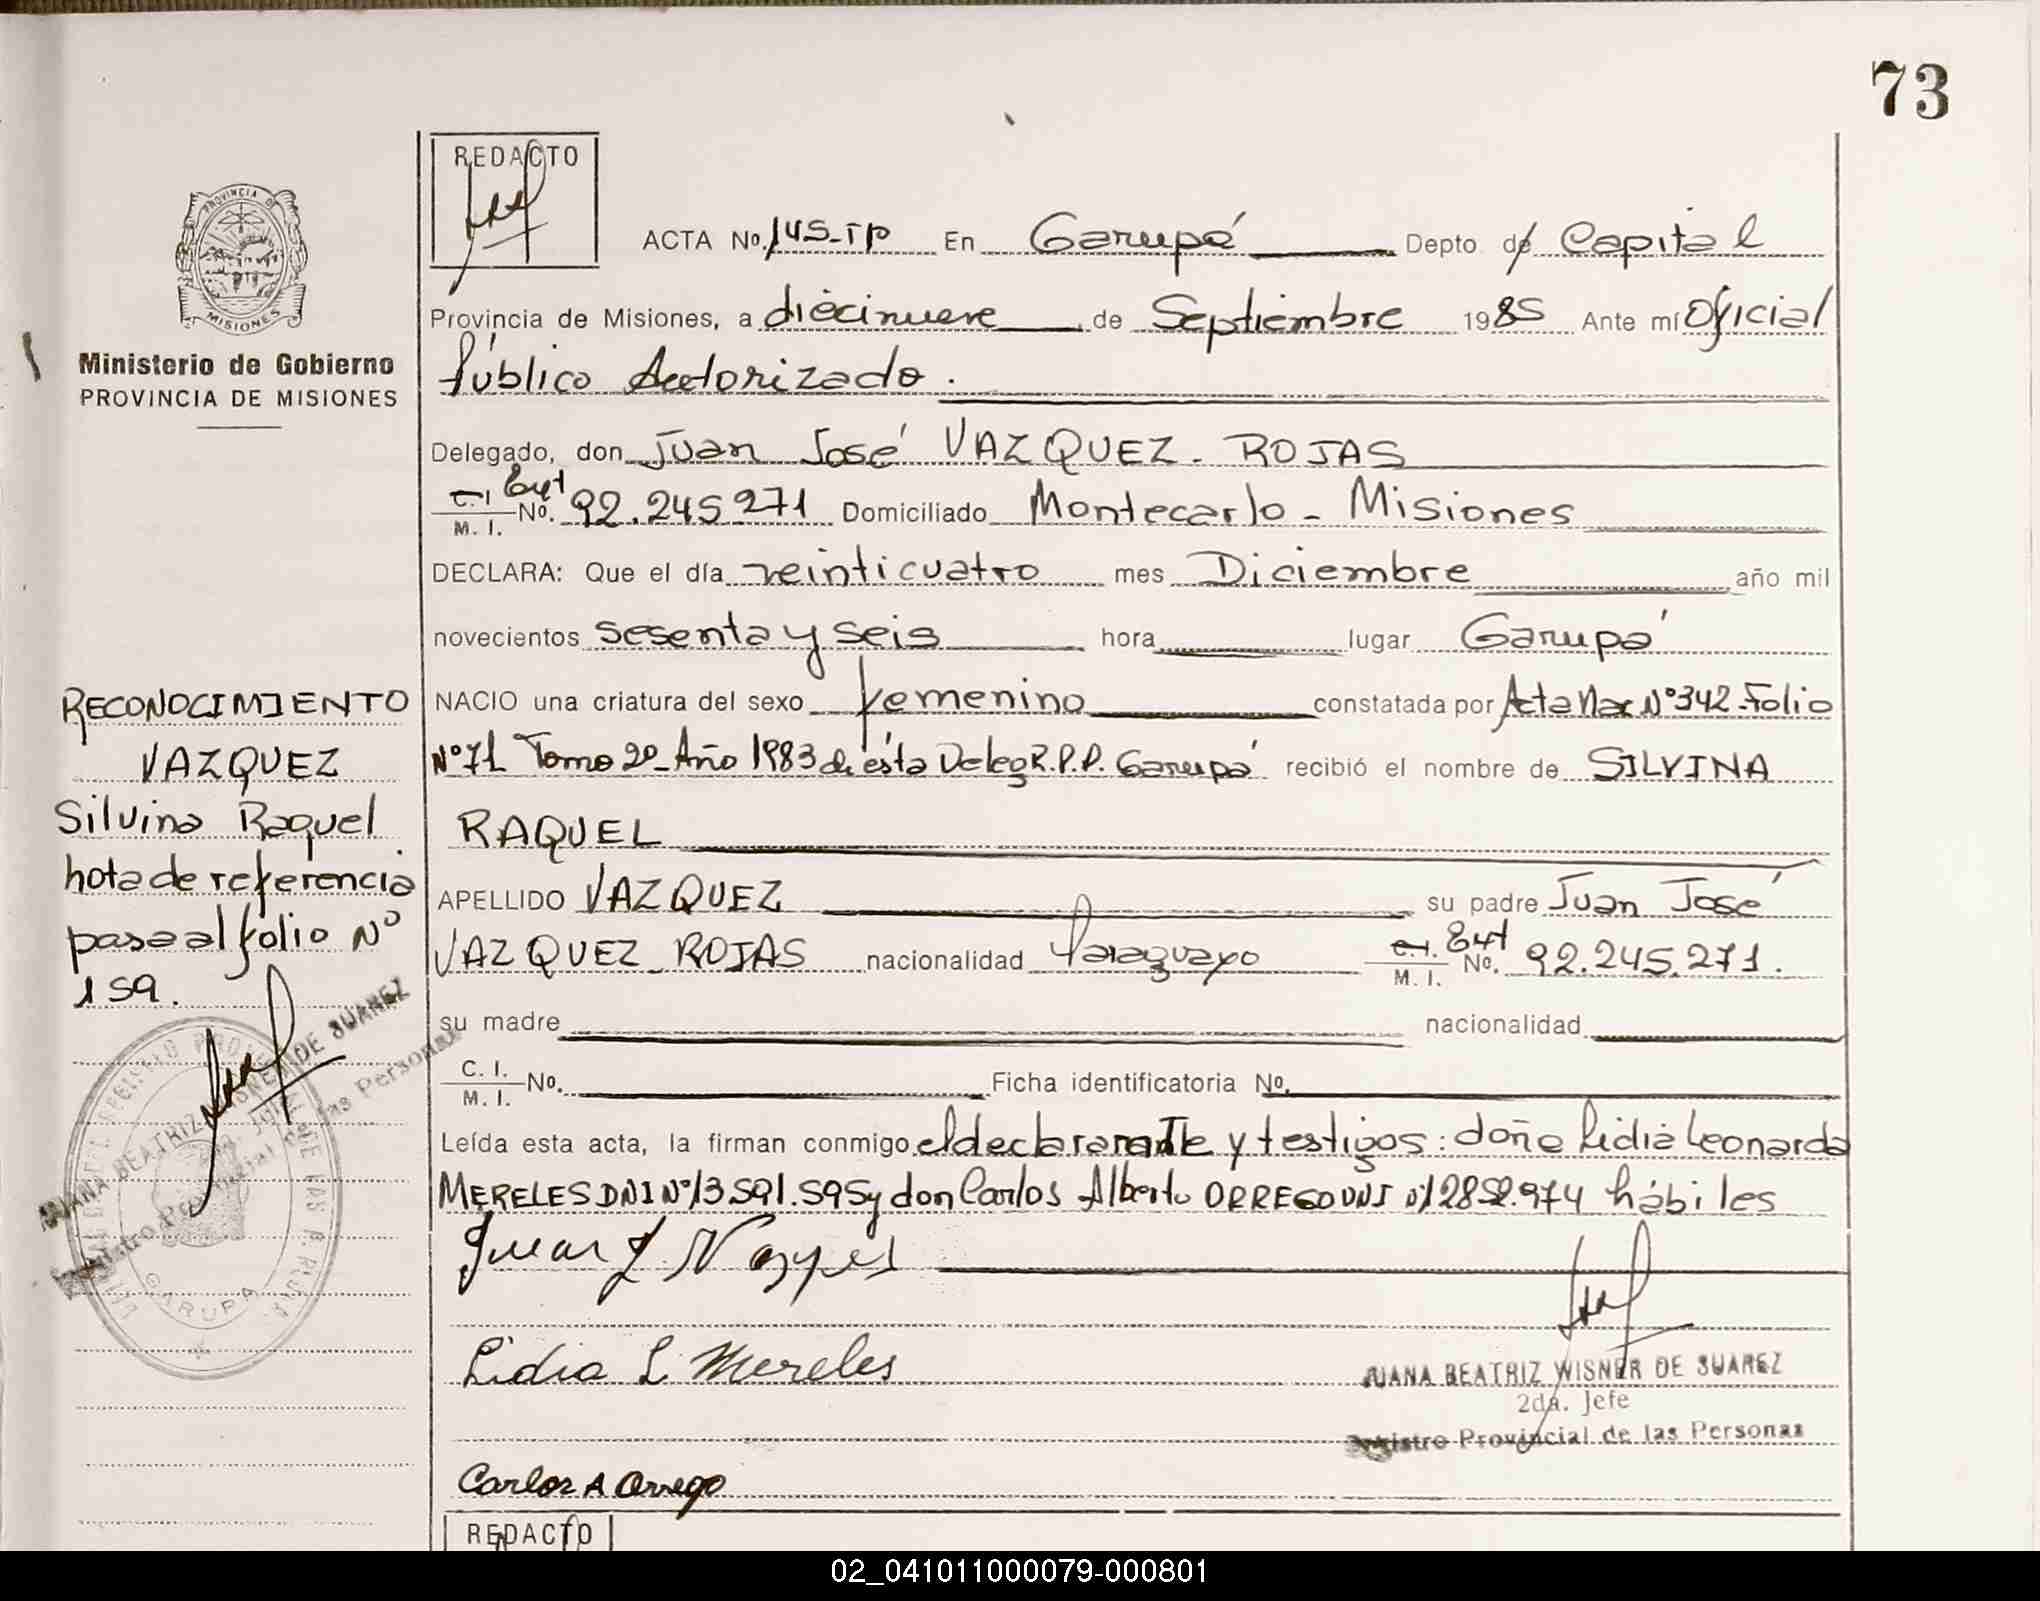 73
REDACTO
ACTA No. 145-TP En Garupá Depto. de Capital
PROVINCIA DE
MISIONES
Ministerio de Gobierno
PROVINCIA DE MISIONES
Provincia de Misiones, a diecinueve de Septiembre 1985 Ante mí Oficial
Público Autorizado.
Delegado, don Juan José VAZQUEZ - ROJAS
C.I Ext
M. I. No. 92.245271 Domiciliado Montecarlo - Misiones
DECLARA: Que el día veinticuatro mes Diciembre año mil
novecientos sesenta y seis hora lugar Garupá
NACIO una criatura del sexo femenino constatada por Acta Nac Nº 342 Folio
Nº 71 Tomo 2º - Año 1983 de ésta Deleg R.P.P. Garupá recibió el nombre de SILVINA
RAQUEL
APELLIDO VAZQUEZ su padre Juan José
VAZQUEZ - ROJAS nacionalidad Paraguayo C.I. Ext
M. I. No. 92.245.271.
su madre nacionalidad
C. I.
M. I. No. Ficha identificatoria No.
Leída esta acta, la firman conmigo el declarante y testigos: doña Lidia Leonarda
MERELES DNI Nº 13.591.595 y don Carlos Alberto ORREGO DNI Nº 12852.974 hábiles
Lidia L Mereles
JUANA BEATRIZ WISNER DE SUAREZ
2da. Jefe
Registro Provincial de las Personas
Carlos A Orrego
REDACTO
RECONOCIMIENTO
VAZQUEZ
Silvina Raquel
nota de referencia
pasa al folio Nº
159.
JUANA BEATRIZ WISNER DE SUAREZ
2da. Jefe
Registro Provincial de las Personas
GARUPA
02_041011000079-000801